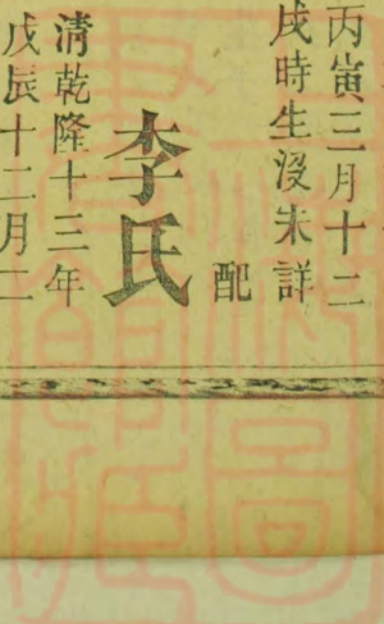 丙寅三月十二
戌時生沒未詳
配
李氏
清乾隆十三年
戊辰十二月二